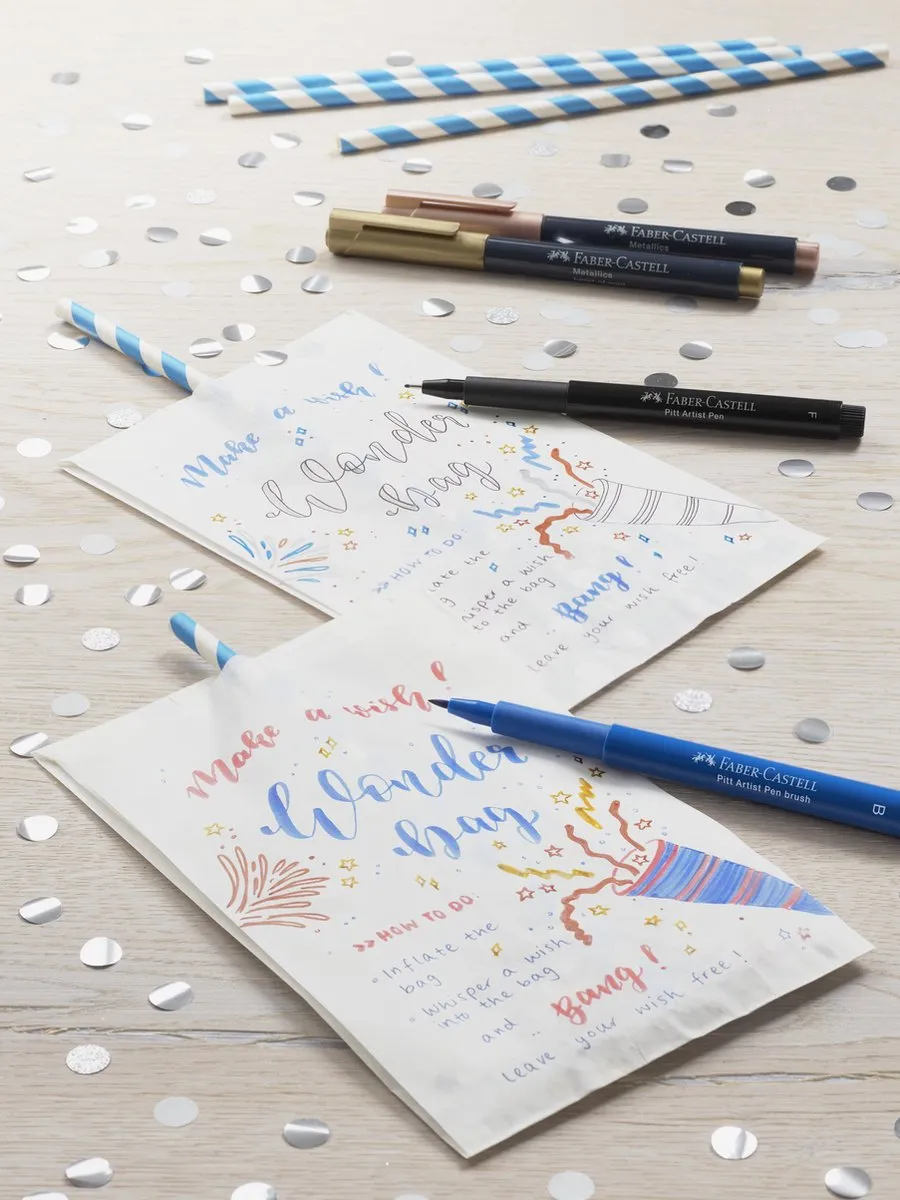 FABER-CASTELL
Metallics
FABER-CASTELL
Metallics
FABER-CASTELL
Pitt Artist Pen
F
Make a wish!
Wonder
bag
>> HOW TO DO:
ate the
g
isper a wish
to the bag
and .. Bang!
leave your wish free!
FABER-CASTELL
Pitt Artist Pen brush
B
Make a wish!
Wonder
bag
>> HOW TO DO:
Inflate the
bag
Whisper a wish
into the bag
and .. Bang!
leave your wish free!